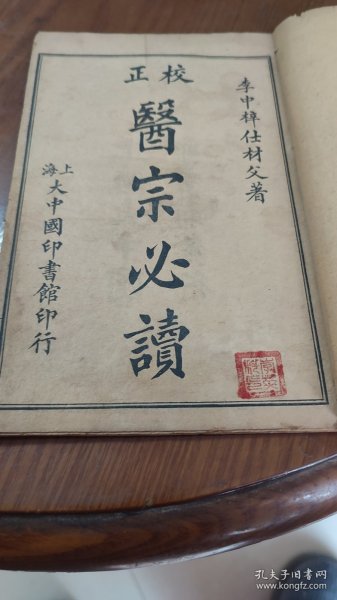 校正
李中梓仕材父著
醫宗必讀
上海大中國印書館印行
孔夫子旧书网
www.kongfz.com